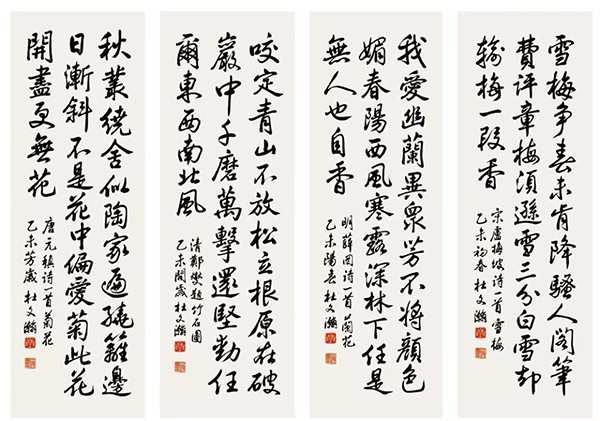 雪梅争春未肯降騷人阁筆
費評章梅須遜雪三分白雪却
输梅一段香
宋盧梅坡诗一首雪梅
乙未初春杜文瀚
我愛幽蘭異衆芳不將顏色
媚春陽西風寒露深林下任是
無人也自香
明薛网诗一首蘭花
乙未陽春杜文瀚
咬定青山不放松立根原在破
巖中千磨萬擊還堅勁任
爾東西南北風
清鄭燮題竹石圖
乙未閏歲杜文瀚
秋叢繞舍似陶家遍繞籬邊
日漸斜不是花中偏愛菊此花
開盡更無花
唐元稹诗一首菊花
乙未芳歲杜文瀚